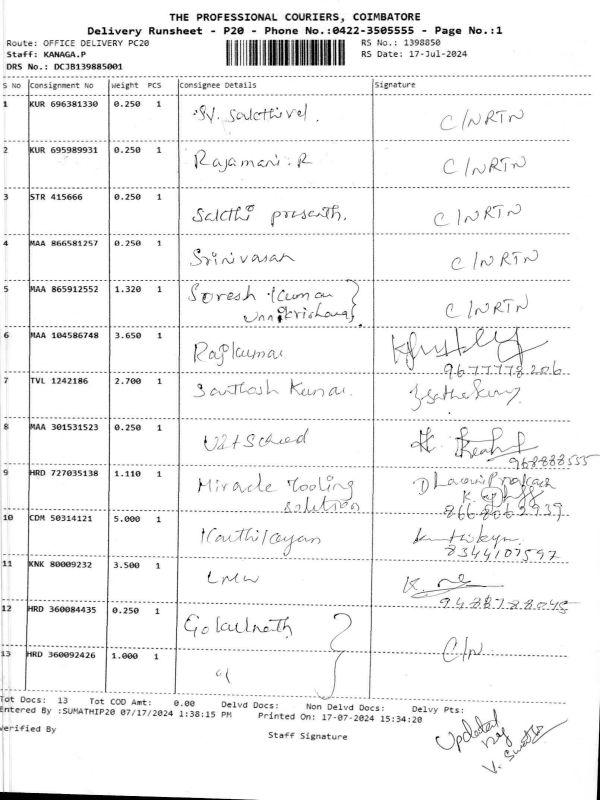 THE PROFESSIONAL COURIERS, COIMBATORE
Delivery Runsheet - P20 - Phone No.:0422-3505555 - Page No.:1
Route: OFFICE DELIVERY PC20 RS No.: 1398850
Staff: KANAGA.P RS Date: 17-Jul-2024
DRS No.: DCJB139885001
S No Consignment No Weight PCS Consignee Details Signature
1 KUR 696381330 0.250 1 C/NRTN
2 KUR 695989931 0.250 1 Rajamani.R C/NRTN
3 STR 415666 0.250 1 Sakthi prasanth. C/NRTN
4 MAA 866581257 0.250 1 Srinivasan C/NRTN
5 MAA 865912552 1.320 1 Suresh Kumar C/NRTN
6 MAA 104586748 3.650 1 Rajkumar
9677778206
7 TVL 1242186 2.700 1 Santhosh Kumar.
8 MAA 301531523 0.250 1
968888555
9 HRD 727035138 1.110 1 Miracle Tooling
solution 8668062939
10 CDM 50314121 5.000 1 Karthikayan
8344107597
11 KNK 80009232 3.500 1 LMW
9488788045
12 HRD 360084435 0.250 1 Gokulnath C/N
13 HRD 360092426 1.000 1
Tot Docs: 13 Tot COD Amt: 0.00 Delvd Docs: Non Delvd Docs: Delvy Pts:
Entered By :SUMATHIP20 07/17/2024 1:38:15 PM Printed On: 17-07-2024 15:34:20
Verified By Staff Signature
Updated
by